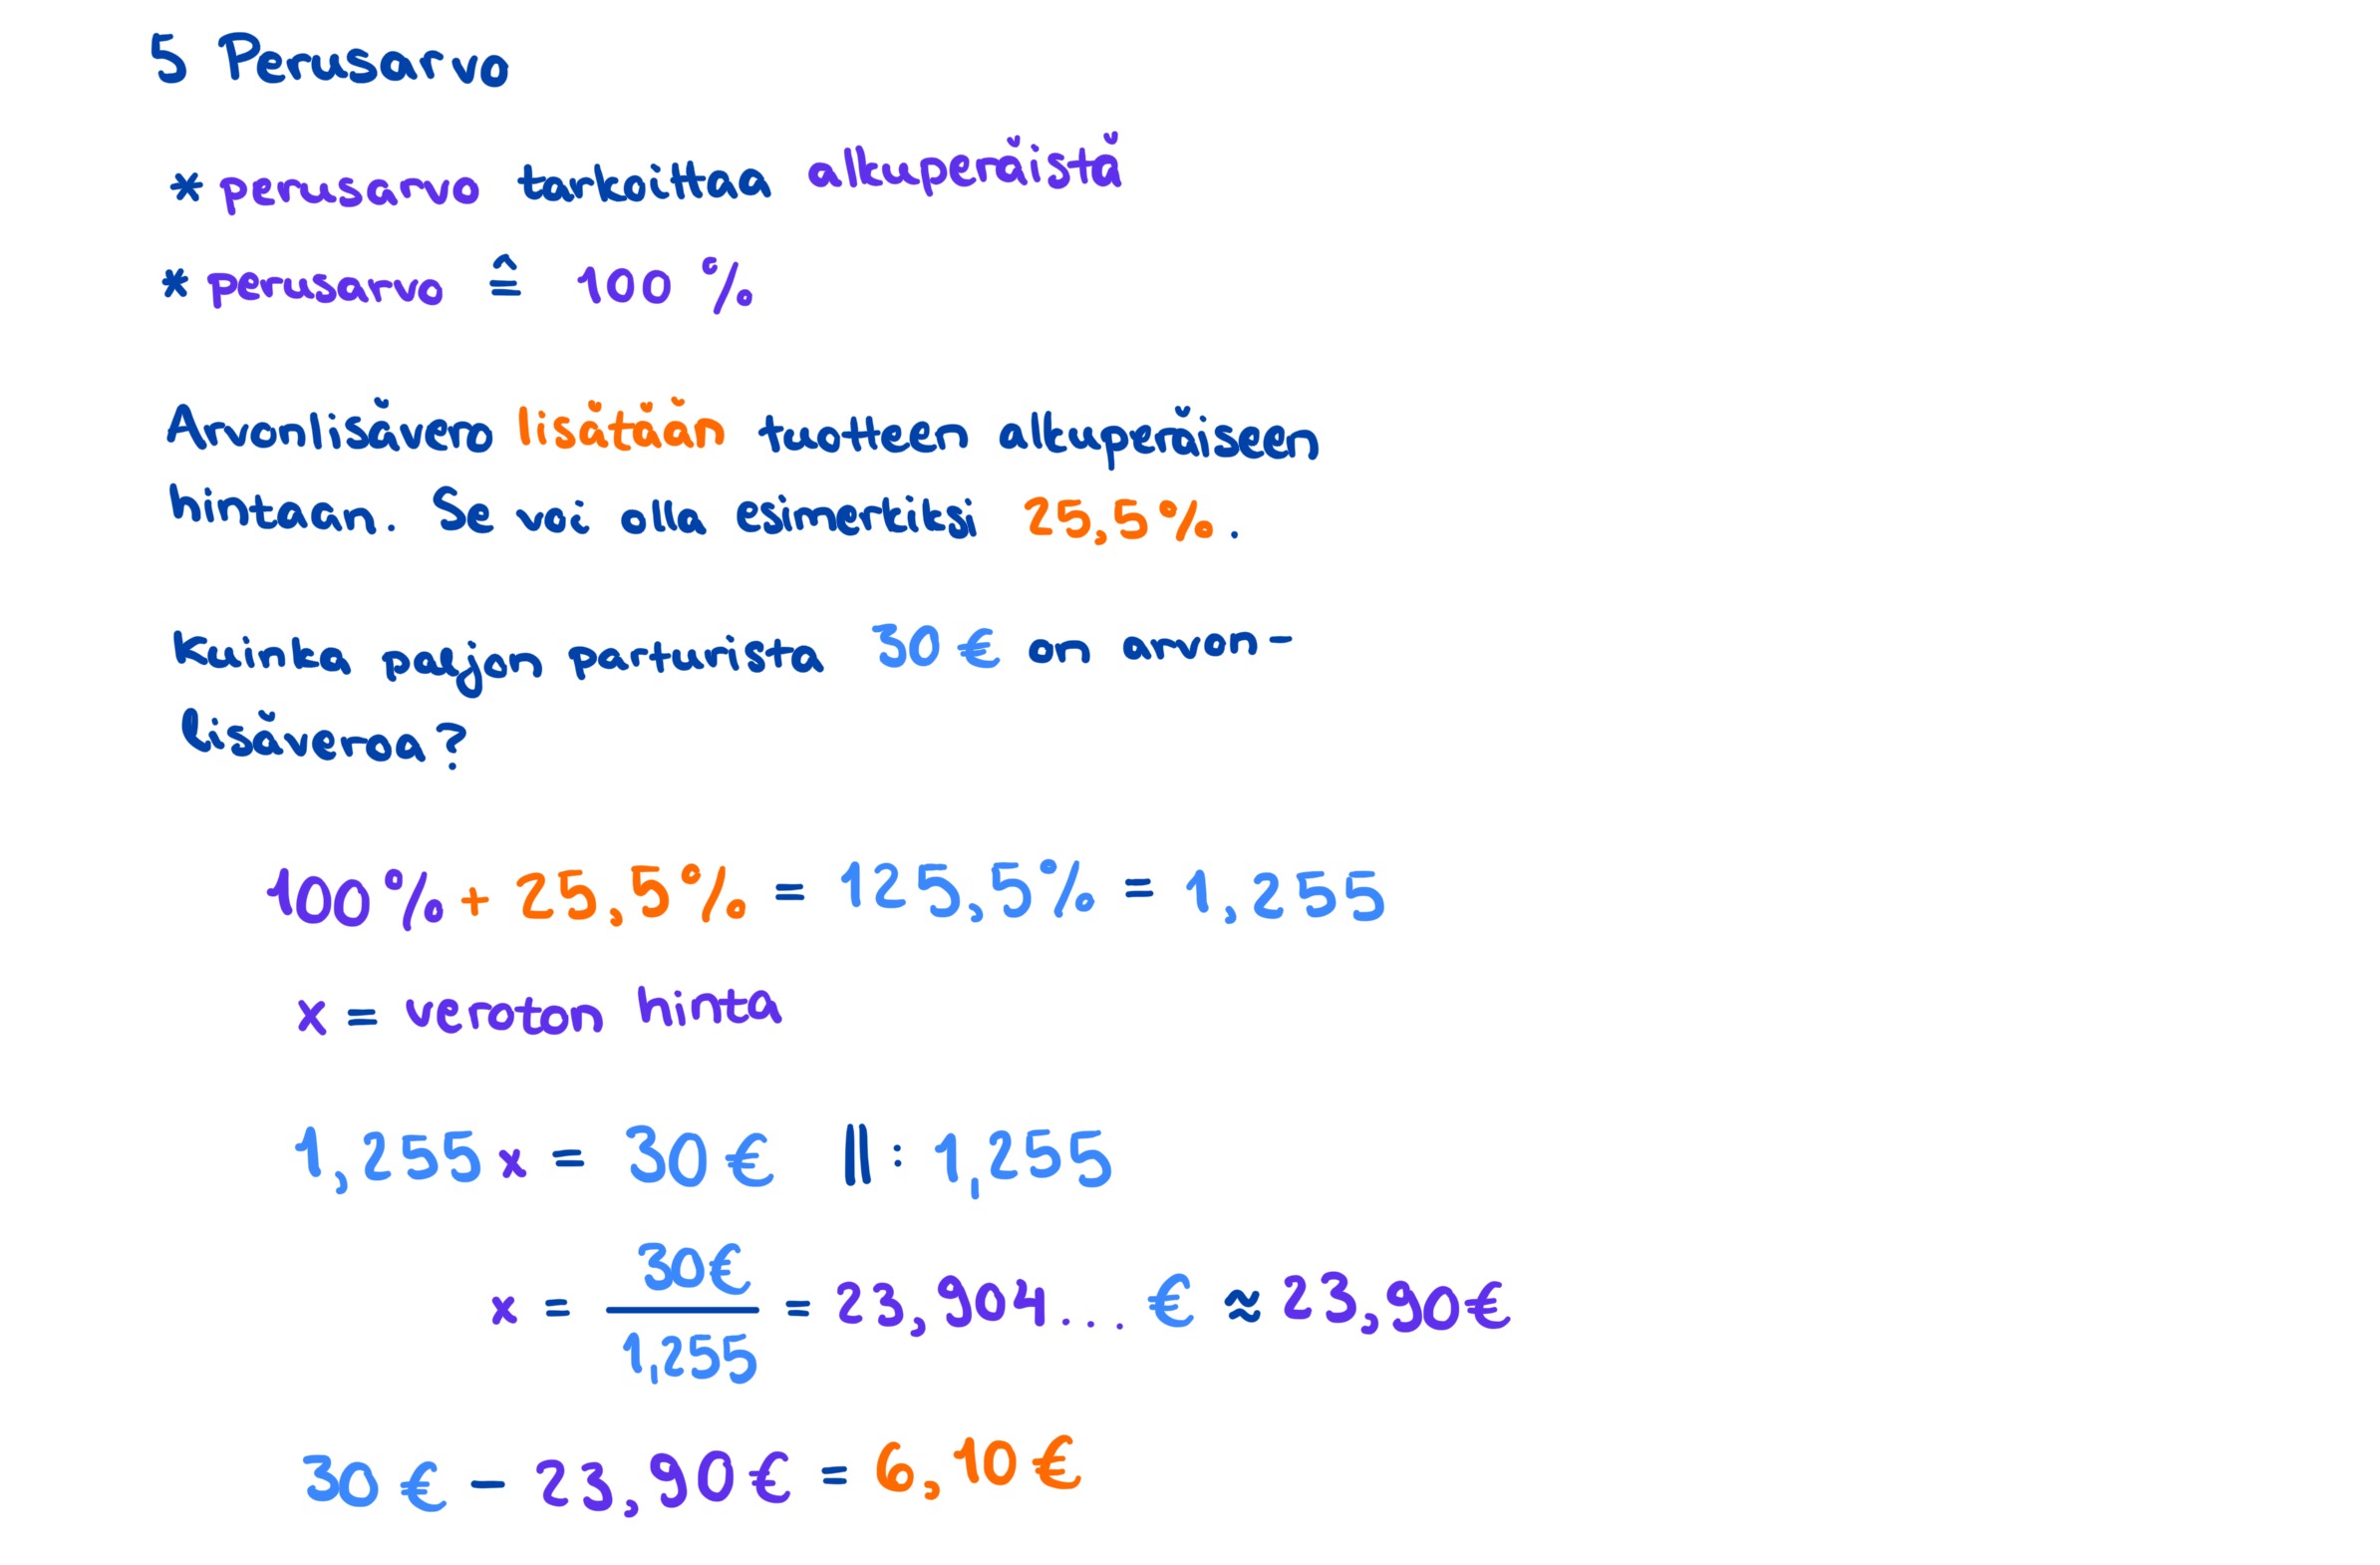 5 Perusarvo
* perusarvo tarkoittaa alkuperäistä
* perusarvo ≙ 100 %
Arvonlisävero lisätään tuotteen alkuperäiseen
hintaan. Se voi olla esimerkiksi 25,5 %.
Kuinka paljon parturista 30 € on arvon-
lisäveroa?
100 % + 25,5 % = 125,5 % = 1,255
x = veroton hinta
1,255 x = 30 € || : 1,255
x = 30 € / 1,255 = 23,904... € ≈ 23,90 €
30 € − 23,90 € = 6,10 €